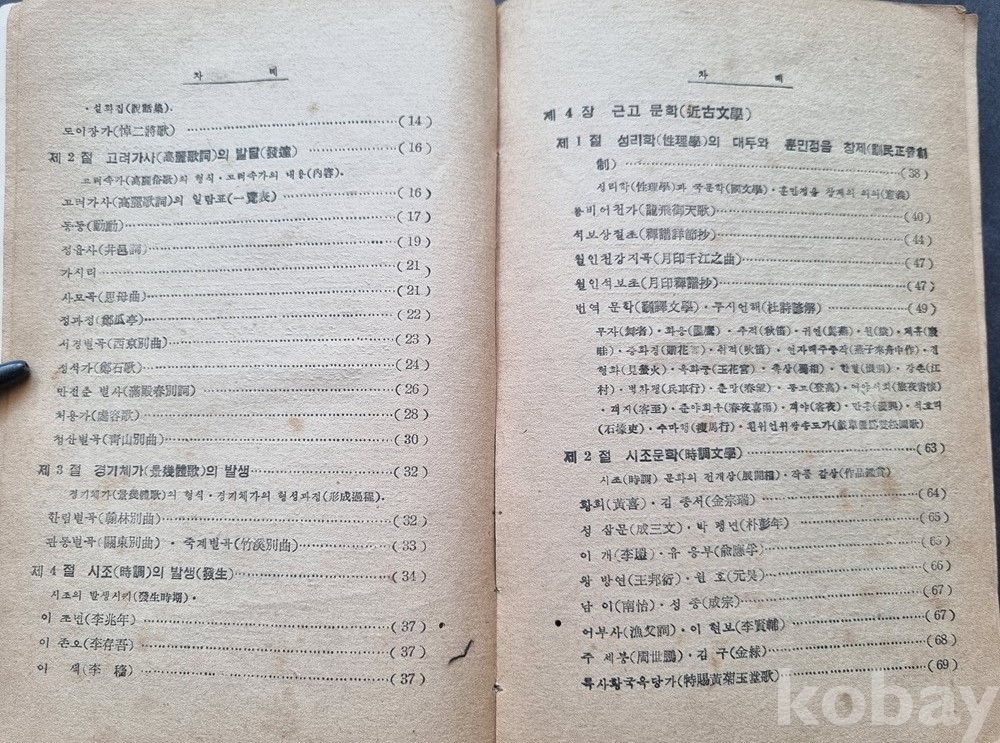 차 례
·설화집(說話集).
도이장가(悼二將歌) (14)
제 2 절 고려가사(高麗歌詞)의 발달(發達) (16)
고려속가(高麗俗歌)의 형식·고려속가의 내용(內容).
고려가사(高麗歌詞)의 일람표(一覽表) (16)
동동(動動) (17)
정읍사(井邑詞) (19)
가시리 (21)
사모곡(思母曲) (21)
정과정(鄭瓜亭) (22)
서경별곡(西京別曲) (23)
정석가(鄭石歌) (24)
만전춘 별사(滿殿春別詞) (26)
처용가(處容歌) (28)
청산별곡(靑山別曲) (30)
제 3 절 경기체가(景幾體歌)의 발생 (32)
경기체가(景幾體歌)의 형식·경기체가의 형성과정(形成過程).
한림별곡(翰林別曲) (32)
관동별곡(關東別曲)·죽계별곡(竹溪別曲) (33)
제 4 절 시조(時調)의 발생(發生) (34)
시조의 발생시기(發生時期).
이 조년(李兆年) (37)
이 존오(李存吾) (37)
이 색(李 穡) (37)
차 례
제 4 장 근고 문학(近古文學)
제 1 절 성리학(性理學)의 대두와 훈민정음 창제(訓民正音創
制) (38)
성리학(性理學)과 국문학(國文學)·훈민정음 창제의 의의(意義)
용비어천가(龍飛御天歌) (40)
석보상절초(釋譜詳節抄) (44)
월인천강지곡(月印千江之曲) (47)
월인석보초(月印釋譜抄) (47)
번역 문학(飜譯文學)·두시언해(杜詩諺解) (49)
추적(秋笛)·귀연(歸燕)
취적(吹笛)·연자래주중작(燕子來舟中作)·견
형화(見螢火)·옥화궁(玉花宮)·촉상(蜀相)·강촌(江
村)·병차정(兵車行)·춘망(春望)·등고(登高)·여야서회(旅夜書懷)
·객지(客至)·춘야희우(春夜喜雨)·객야(客夜)·만흥(漫興)·석호리
(石壕吏)·수마정(瘦馬行)
제 2 절 시조문학(時調文學) (63)
시조(時調) 문화의 전개상(展開相)·작품 감상(作品鑑賞)
황희(黃喜)·김 종서(金宗瑞) (64)
성 삼문(成三文)·박 팽년(朴彭年) (65)
이 개(李塏)·유 응부(兪應孚) (65)
왕 방연(王邦衍)·원 호(元昊) (66)
남 이(南怡)·성 종(成宗) (67)
어부사(漁父詞)·이 현보(李賢輔) (67)
주 세붕(周世鵬)·김 구(金絿) (68)
특사황국옥당가(特賜黃菊玉堂歌) (69)
kobay